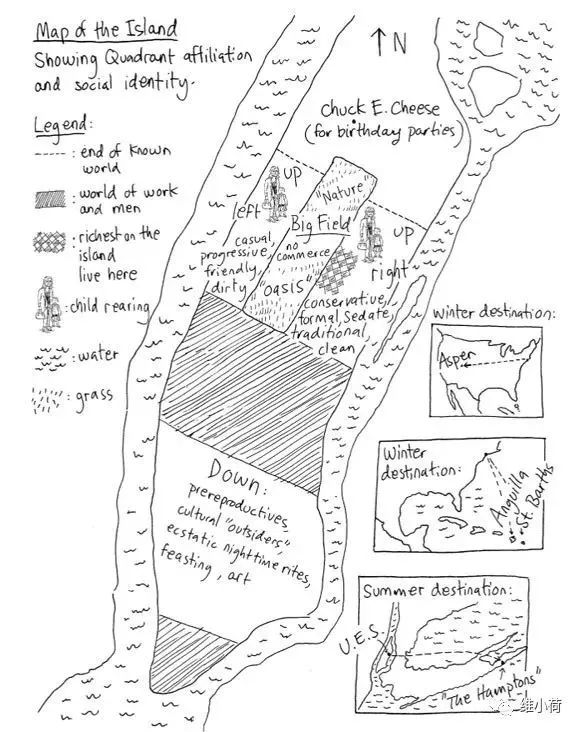 Map of the Island
Showing Quadrant affiliation
and social identity.
Legend:
: end of known
world
: world of work
and men
: richest on the
island
live here
: child rearing
: water
: grass
↑N
Chuck E. Cheese
(for birthday parties)
up
left
"Nature"
Big Field
no
commerce
"oasis"
casual,
progressive,
friendly,
dirty
up
right
conservative,
formal, sedate,
traditional,
clean
Down:
prereproductives,
cultural "outsiders,"
ecstatic nighttime rites,
feasting, art
Winter destination:
Aspen
Winter
destination:
Anguilla
St. Barths
Summer destination:
U.E.S.
"The Hamptons"
维小荷